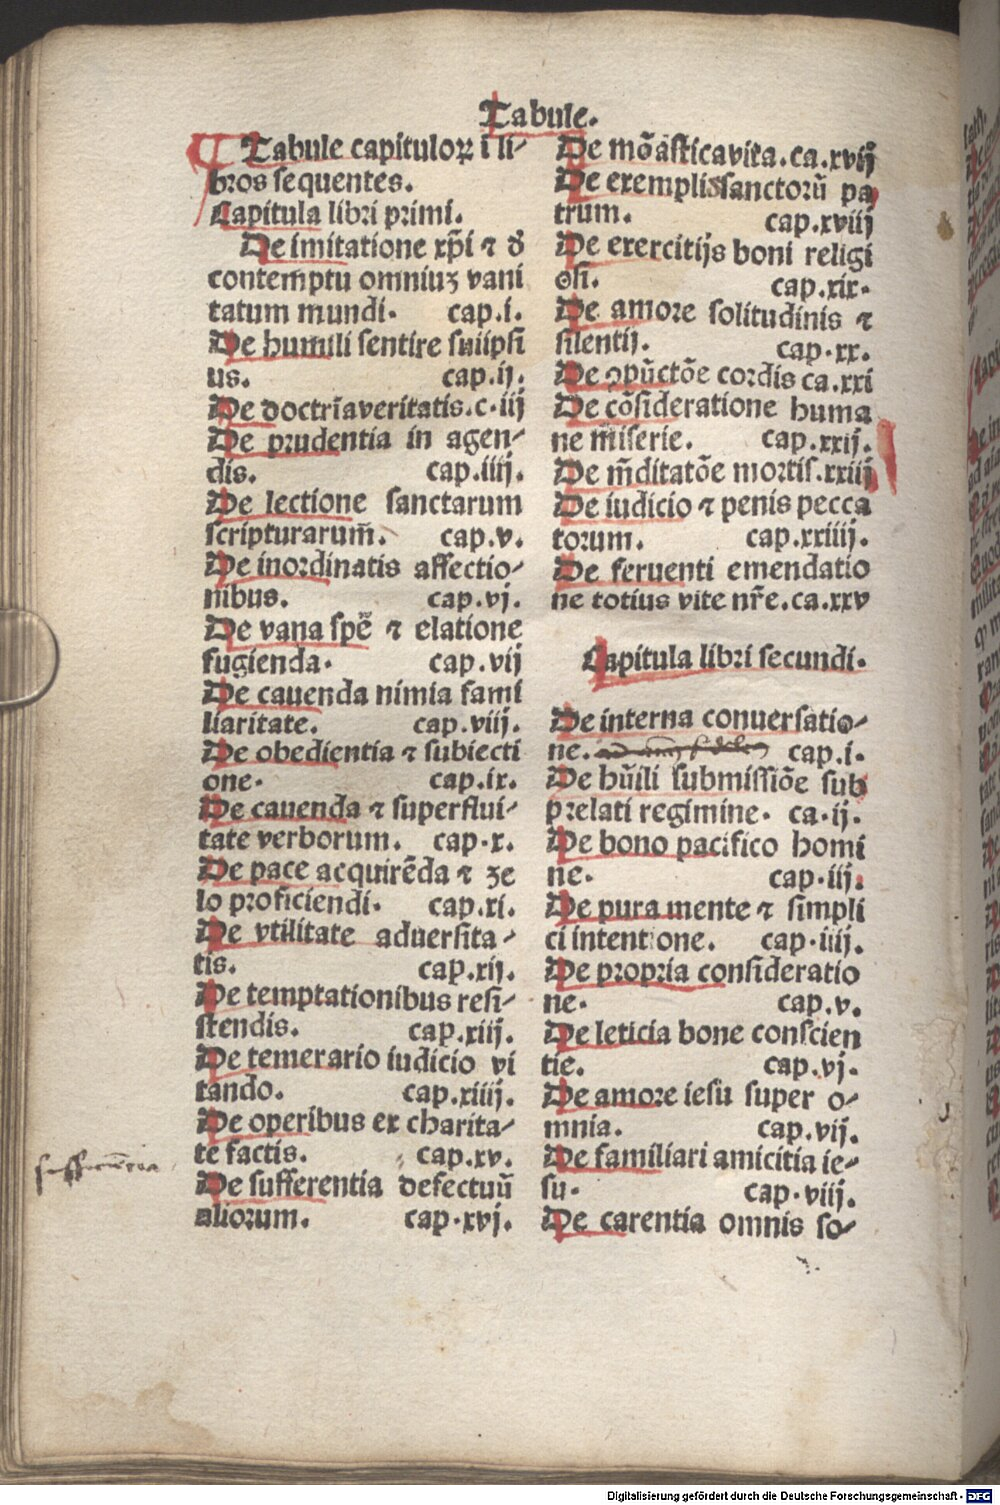 Tabule.
Tabule capituloꝝ ī li⸗
bros sequentes.
Capitula libri primi.
De imitatione xp̄i ⁊ ꝺ̄
contemptu omniuꝫ vani
tatum mundi. cap.i.
De humili sentire suiipsi
us. cap.ij.
De doctrīaveritatis.c.iij
De prudentia in agen⸗
dis. cap.iiij.
De lectione sanctarum
scripturarum̄. cap.v.
De inordinatis affectio⸗
nibus. cap.vj.
De vana spē ⁊ elatione
fugienda. cap.vij
De cauenda nimia fami
liaritate. cap.viij.
De obedientia ⁊ subiecti
one. cap.ix.
De cauenda ⁊ superflui⸗
tate verborum. cap.x.
De pace acquirēda ⁊ ze
lo proficiendi. cap.xi.
De vtilitate aduersita⸗
tis. cap.xij.
De temptationibus resi⸗
stendis. cap.xiij.
De temerario iudicio vi
tando. cap.xiiij.
De operibus ex charita⸗
te factis. cap.xv.
De sufferentia defectuū
aliorum. cap.xvj.
De mōasticavita.ca.xvij
De exemplissanctorū pa
trum. cap.xviij
De exercitijs boni religi
osi. cap.xix.
De amore solitudinis ⁊
silentij. cap.xx.
De ꝯpūctōe cordis ca.xxi
De cōsideratione huma
ne miserie. cap.xxij.
De m̄ditatōe mortis.xxiij
De iudicio ⁊ penis pecca
torum. cap.xxiiij.
De feruenti emendatio
ne totius vite nr̄e.ca.xxv
Capitula libri secundi.
De interna conuersatio⸗
ne. cap.i.
De hūili submissiōe sub
prelati regimine. ca.ij.
De bono pacifico homi
ne. cap.iij.
De pura mente ⁊ simpli
ci intentione. cap.iiij.
De propria consideratio
ne. cap.v.
De leticia bone conscien
tie. cap.vj.
De amore iesu super o⸗
mnia. cap.vij.
De familiari amicitia ie⸗
su. cap.viij.
De carentia omnis so⸗
Digitalisierung gefördert durch die Deutsche Forschungsgemeinschaft - DFG